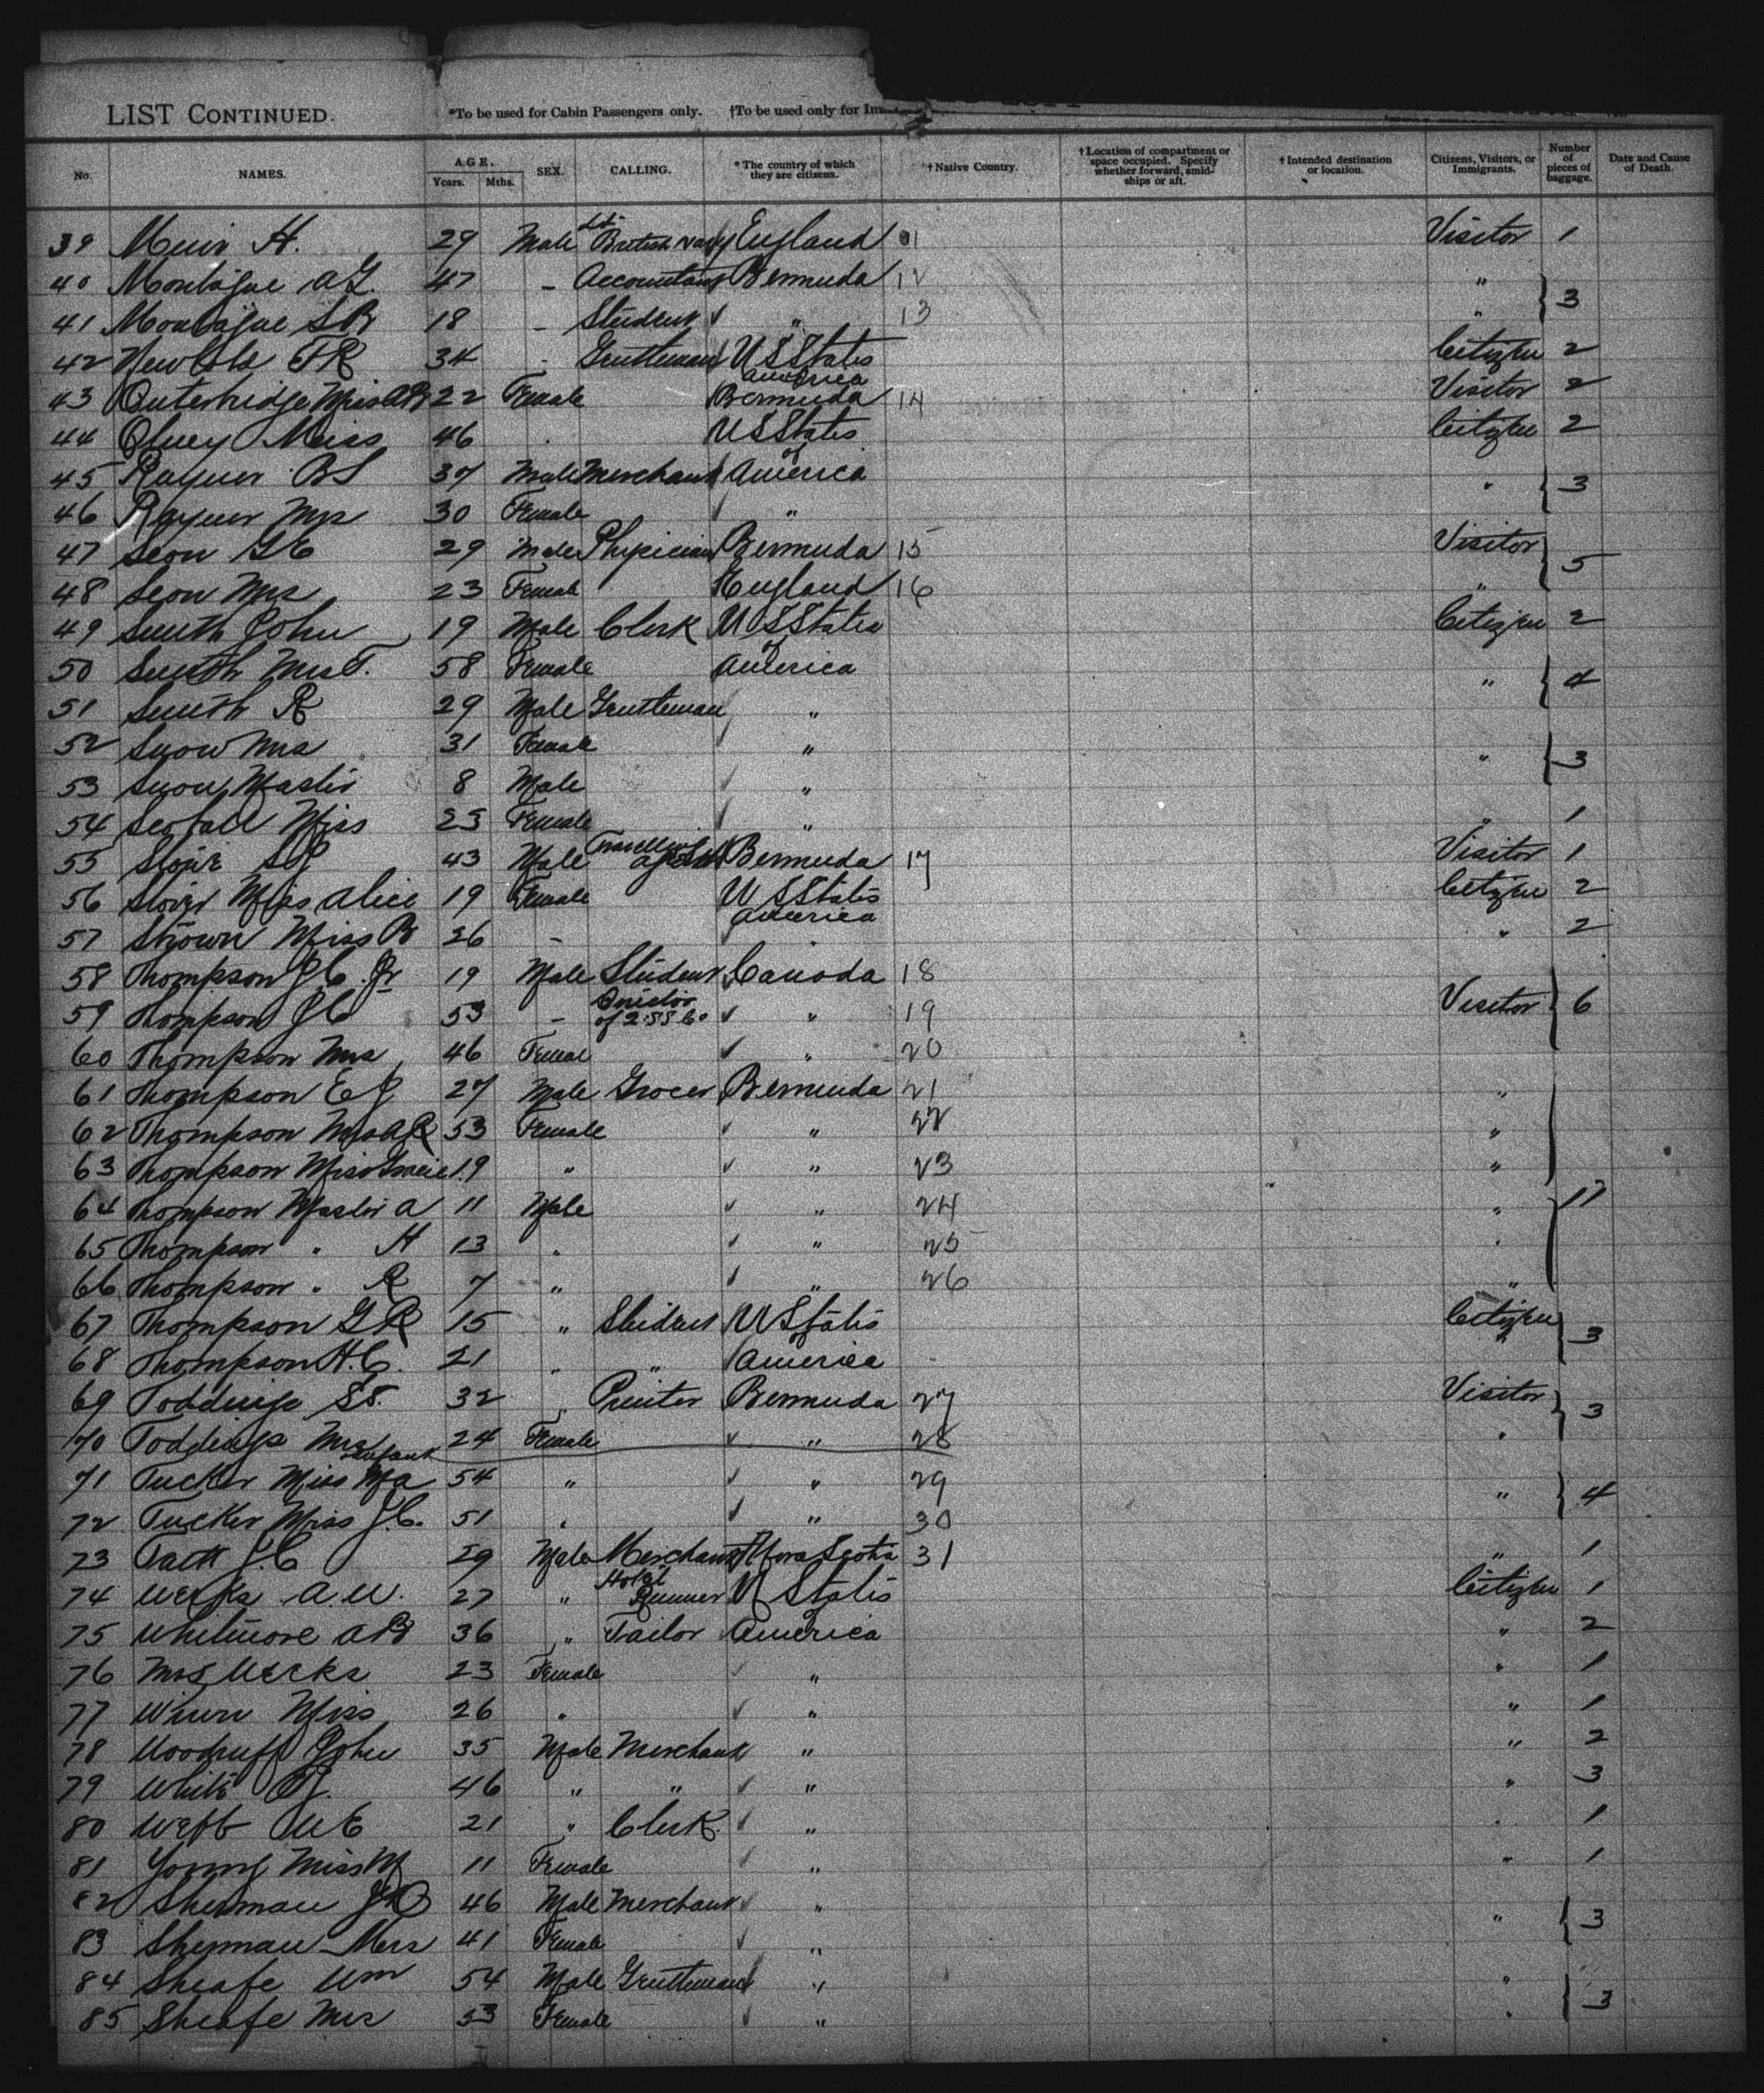 LIST CONTINUED. *To be used for Cabin Passengers only. †To be used only for Im
No. NAMES. AGE. Years. Mths. SEX. CALLING. *The country of which they are citizens. †Native Country. †Location of compartment or space occupied. Specify whether forward, amidships or aft. †Intended destination or location. Citizens, Visitors, or Immigrants. Number of pieces of baggage. Date and Cause of Death.
39 Muir H. 29 Male Lt. British Navy England 11 Visitor 1
40 Montague A.G. 47 - Accountant Bermuda 12 " 3
41 Montague S B 18 - Student " 13 "
42 F R 34 - Gentleman U S States America Citizen 2
43 Outerbridge Miss 22 Female Bermuda 14 Visitor 2
44 Olney Miss 46 . U S States of Citizen 2
45 Rayner B S 37 Male Merchant America " 3
46 Rayner Mrs 30 Female "
47 Seon G E 29 Male Physician Bermuda 15 Visitor 5
48 Seon Mrs 23 Female England 16 "
49 Smith John 19 Male Clerk U S States of Citizen 2
50 Smith Mrs T. 58 Female America " 4
51 Smith R 29 Male Gentleman "
52 Snow Mrs 31 Female " " 3
53 Snow Master 8 Male "
54 Miss 23 Female " " 1
55 43 Male Travelling agent Bermuda 17 Visitor 1
56 Miss Alice 19 Female U S States America Citizen 2
57 Miss B 26 - " 2
58 Thompson J C Jr 19 Male Student Canada 18
59 Thompson J C 53 - of 2.SS Co " 19 Visitor 6
60 Thompson Mrs 46 Female " 20
61 Thompson E J 27 Male Grocer Bermuda 21 "
62 Thompson Mrs 53 Female " 22 "
63 Thompson Miss Gracie 19 " " 23 "
64 Thompson Master A 11 Male " 24 " 17
65 Thompson " H 13 " " 25 "
66 Thompson " R 7 " " 26 "
67 Thompson G R 15 " Student U States of Citizen 3
68 Thompson H.C. 21 " " America "
69 Toddings S S. 32 " Printer Bermuda 27 Visitor 3
70 Toddings Mrs Infant 24 Female " 28 "
71 Tucker Miss M A 54 " " 29 " 4
72 Tucker Miss J.C. 51 " " 30
73 J C 29 Male Merchant Nova Scotia 31 " 1
74 Weeks A.W. 27 " Hotel Runner U States of Citizen 1
75 Whitmore A B 36 " Tailor America " 2
76 Mrs Weeks 23 Female " " 1
77 Winn Miss 26 " " " 1
78 Woodruff John 35 Male Merchant " " 2
79 White 46 " " " " 3
80 Webb W E 21 " Clerk " " 1
81 Young Miss M 11 Female " " 1
82 Sherman 46 Male Merchant " " 3
83 Sherman Mrs 41 Female "
84 Sheafe Wm 54 Male Gentleman " " 3
85 Sheafe Mrs 53 Female " "